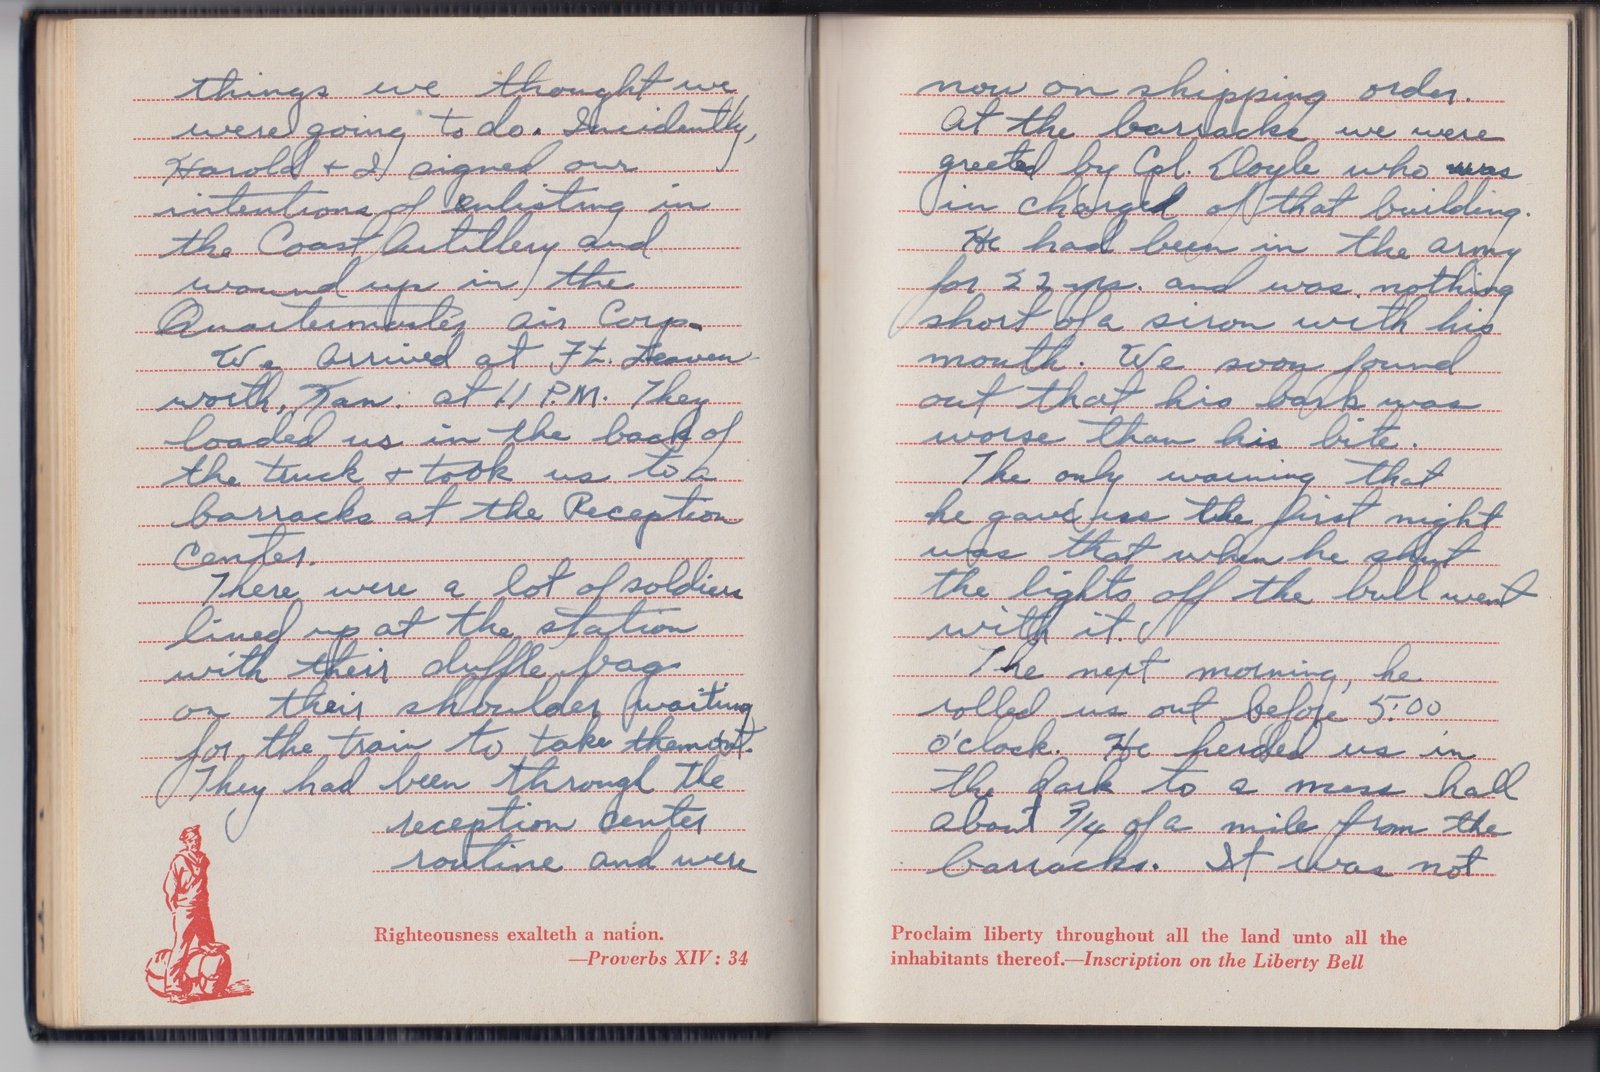 things we thought we
were going to do. Incidently,
Harold + I signed our
intentions of enlisting in
the Coast Artillery and
wound up in the
Quartermaster air Corp.
We arrived at Ft. Leaven
worth, Kan. at 11 P.M. They
loaded us in the back of
the truck + took us to a
barracks at the Reception
Center.
There were a lot of soldiers
lined up at the station
with their duffle bag
on their shoulder waiting
for the train to take them out.
They had been through the
reception center
routine and were
Righteousness exalteth a nation.
—Proverbs XIV: 34
now on shipping order.
At the barracks we were
greeted by Cpl. Doyle who was
in charged of that building.
He had been in the army
for 22 yrs. and was nothing
short of a siron with his
mouth. We soon found
out that his bark was
worse than his bite.
The only warning that
he gave us the first night
was that when he shut
the lights off the bull went
with it.
The next morning, he
rolled us out before 5:00
o'clock. He herded us in
the dark to a mess hall
about 3/4 of a mile from the
barracks. It was not
Proclaim liberty throughout all the land unto all the
inhabitants thereof.—Inscription on the Liberty Bell